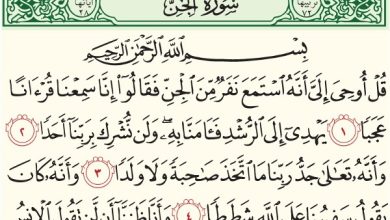 سُورَةُ الجِنِّ
بِسْمِ اللَّهِ الرَّحْمَٰنِ الرَّحِيمِ
قُلْ أُوحِيَ إِلَيَّ أَنَّهُ اسْتَمَعَ نَفَرٌ مِّنَ الْجِنِّ فَقَالُوا إِنَّا سَمِعْنَا قُرْءَانًا
عَجَبًا ١ يَهْدِي إِلَى الرُّشْدِ فَـَٔامَنَّا بِهِ وَلَن نُّشْرِكَ بِرَبِّنَا أَحَدًا ٢
وَأَنَّهُ تَعَٰلَىٰ جَدُّ رَبِّنَا مَا اتَّخَذَ صَٰحِبَةً وَلَا وَلَدًا ٣ وَأَنَّهُ كَانَ
يَقُولُ سَفِيهُنَا عَلَى اللَّهِ شَطَطًا ٤ وَأَنَّا ظَنَنَّا أَن لَّن تَقُولَ الْإِنسُ